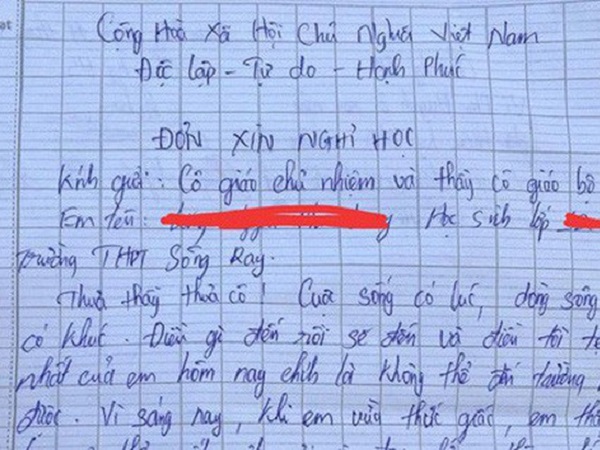 Cộng Hoà Xã Hội Chủ Nghĩa Việt Nam
Độc Lập - Tự do - Hạnh Phúc
ĐƠN XIN NGHỈ HỌC
Kính gửi: Cô giáo chủ nhiệm và thầy cô giáo bộ
Em tên: Học sinh lớp
trường THPT Sông Ray.
Thưa thầy thưa cô! Cuộc sống có lúc, dòng sông
có khúc. Điều gì đến rồi sẽ đến và điều tồi tệ
nhất của em hôm nay chính là không thể đến trường
được. Vì sáng nay, khi em vừa thức giấc, em